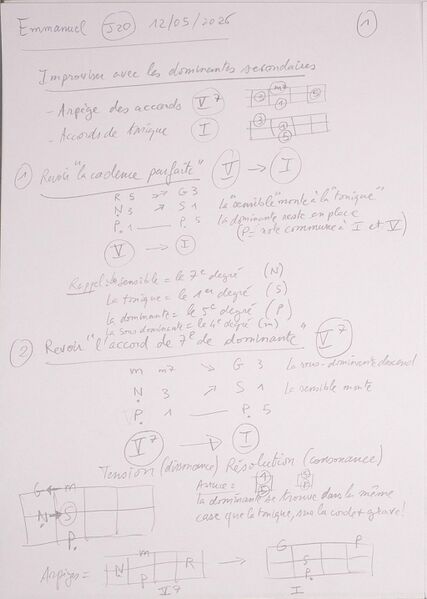 Emmanuel J20 12/05/2026 1
Improviser avec les dominantes secondaires
- Arpège des accords V7
- Accords de tonique I
① Revoir "la cadence parfaite" V → I
R 5 → G 3 La "sensible" monte à la "tonique"
N 3 ↗ S 1 la dominante reste en place
P 1 — P 5 (P = note commune à I et V)
V → I
Rappel: la sensible = le 7e degré (N)
La tonique = le 1er degré (S)
la dominante = le 5e degré (P)
La sous dominante = le 4e degré (m)
② Revoir "l'accord de 7e de dominante" V7
m m7 → G 3 la sous-dominante descend
N 3 ↗ S 1 la sensible monte
P 1 — P 5
V7 → I
Tension (dissonance) Résolution (consonance)
G ← m
N → S
P
la dominante se trouve dans la même
case que la tonique, sur la corde + grave!
Arpèges = N m P R → G S P P
V7 I